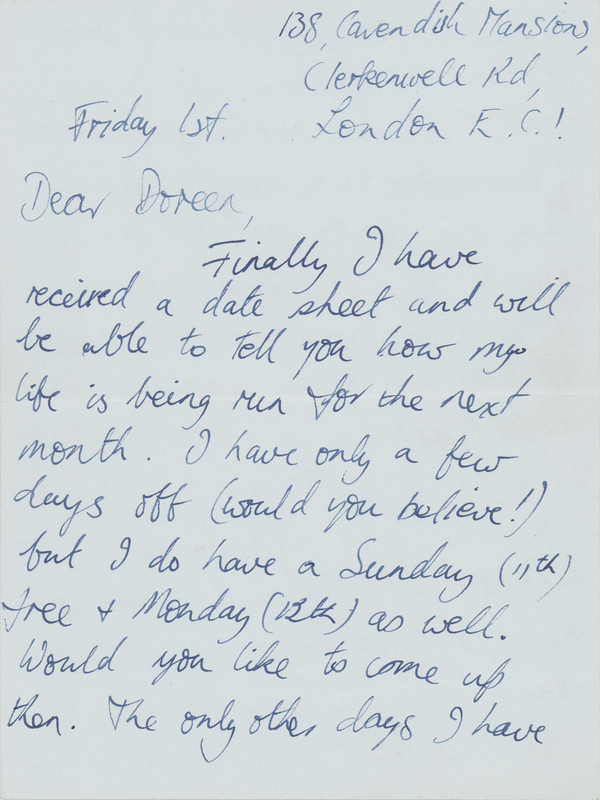 138, Cavendish Mansions,
Clerkenwell Rd,
Friday 1st. London E.C.1
Dear Doreen,
Finally I have
received a date sheet and will
be able to tell you how my
life is being run for the next
month. I have only a few
days off (would you believe!)
but I do have a Sunday (11th)
free + Monday (12th) as well.
Would you like to come up
then. The only other days I have